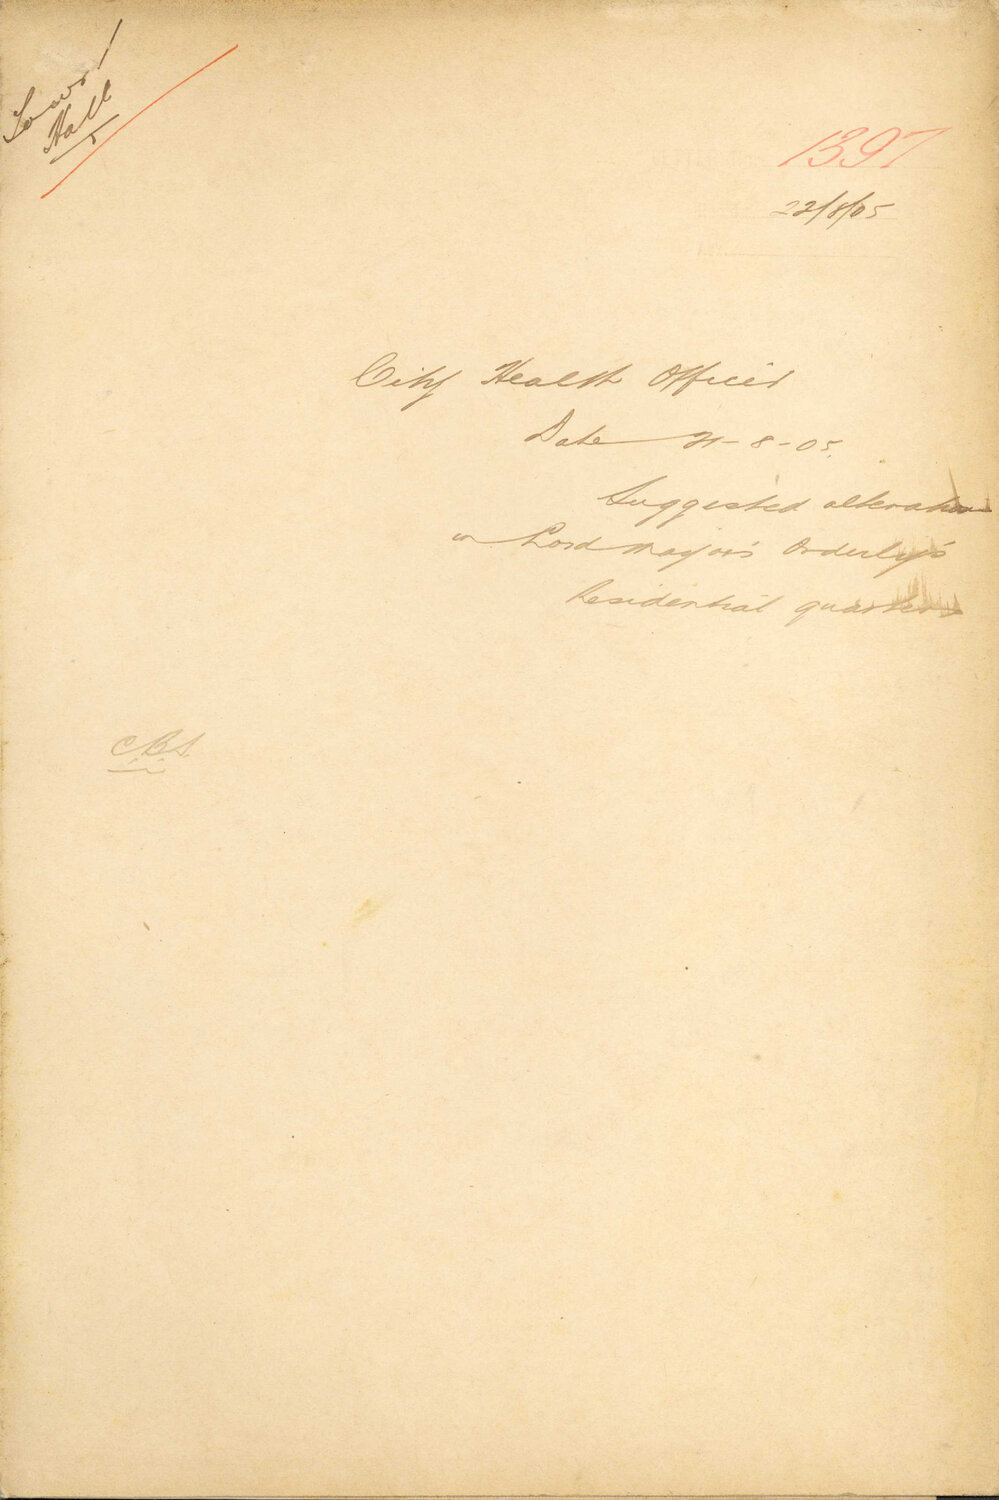 Town
Hall
1397
22/8/05
City Health Officer
Date 21-8-05.
Suggested alteration
in Lord Mayor's Orderly's
Residential quarters
C.B.S.